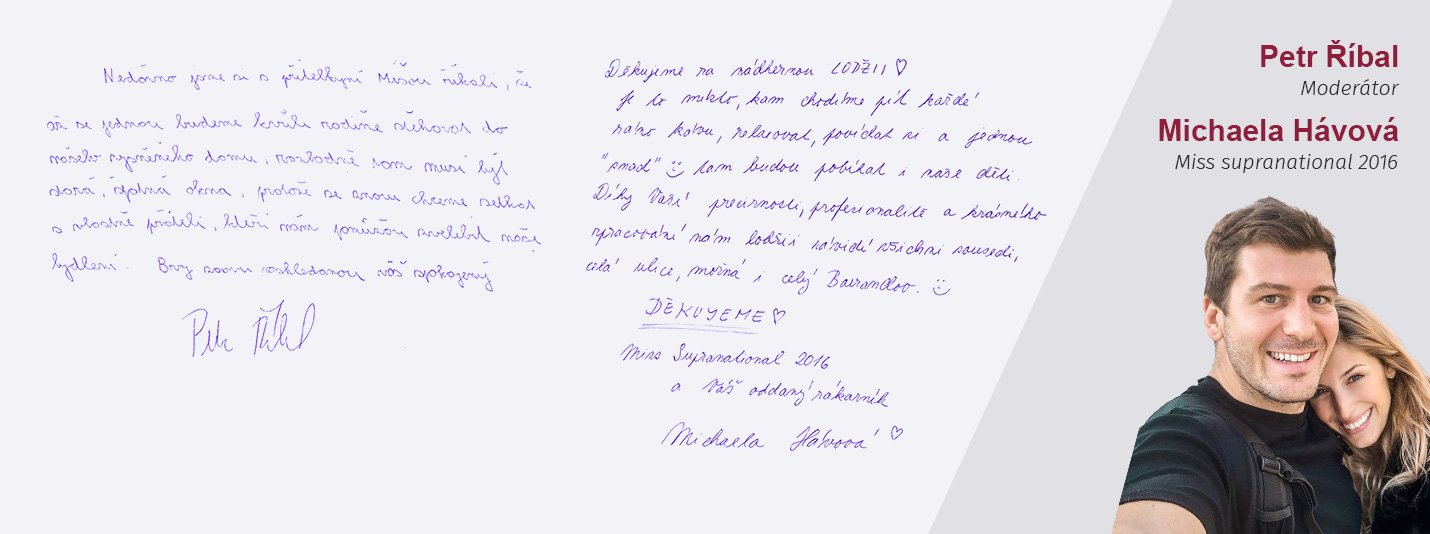 Nedávno jsme si s přítelkyní Míšou říkali, že
až se jednou budeme kvůli rodině stěhovat do
našeho vysněného domu, rozhodně tam musí být
dorá, špičná okna. protože se znovu chceme setkat
s vlastně přáteli, kteří nám pomůžou zvelebit naše
bydlení. Brzy znovu naskledanou váš spokojený
Petr Říbal
Děkujeme za nádhernou LODŽII ♡
Je to místo, kam chodíme pít každé
ráno kávu, relaxovat, povídat si a jednou
"snad" tam budou pobíhat i naše děti.
Díky Vaší preciznosti, profesionalitě a krásného
zpracování nám lodžii závidí všichni sousedi,
celá ulice, možná i celý Barrandov.
DĚKUJEME ♡
Miss Supranational 2016
a Váš oddaný zákazník
Michaela Hávová ♡
Petr Říbal
Moderátor
Michaela Hávová
Miss supranational 2016